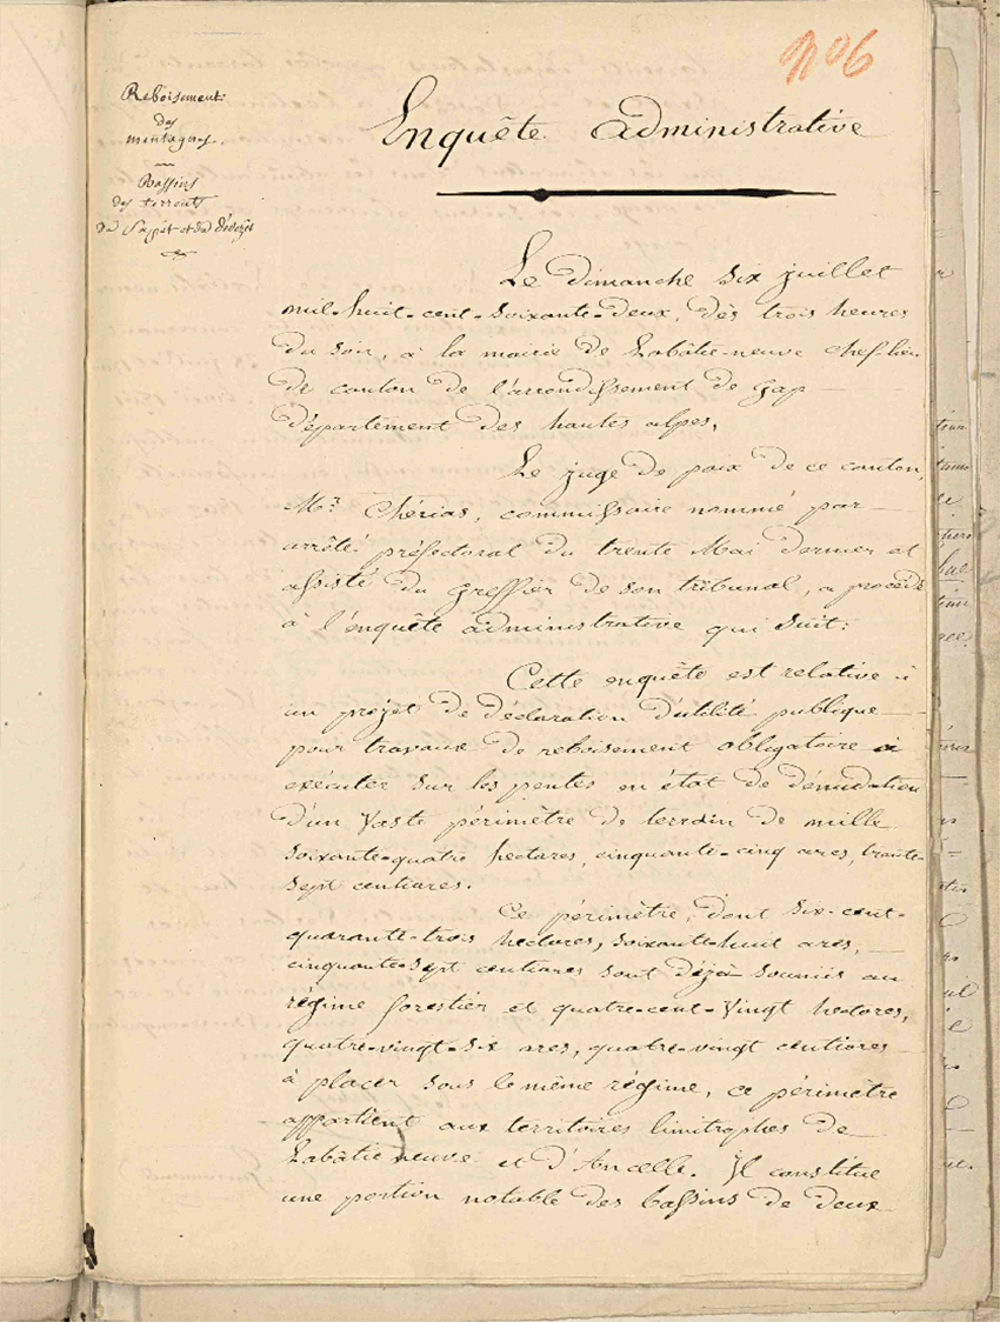 nº 6
Reboisement
des
montagnes.
Bassins
des torrents
du Sapet et du Dévezet
Enquête administrative
Le dimanche six juillet
mil-huit-cent-soixante-deux, dès trois heures
du soir, à la mairie de Labâtie-neuve chef-lieu
de canton de l'arrondissement de gap
département des hautes alpes,
Le juge de paix de ce canton,
Mr. Chérias, commissaire nommé par
arrêté préfectoral du trente Mai dernier et
assisté du greffier de son tribunal, a procédé
à l'enquête administrative qui suit:
Cette enquête est relative à
un projet de déclaration d'utilité publique
pour travaux de reboisement obligatoire à
exécuter sur les pentes en état de dénudation
d'un vaste périmètre de terrain de mille
soixante-quatre hectares, cinquante-cinq ares, trente-
sept centiares.
Ce périmètre, dont six-cent-
quarante-trois hectares, soixante-huit ares,
cinquante-sept centiares sont déjà soumis au
régime forestier et quatre-cent-vingt hectares,
quatre-vingt-six ares, quatre-vingt centiares
à placer sous le même régime, ce périmètre
appartient aux territoires limitrophes de
Labâtie neuve et d'Ancelle. Il constitue
une portion notable des bassins de deux